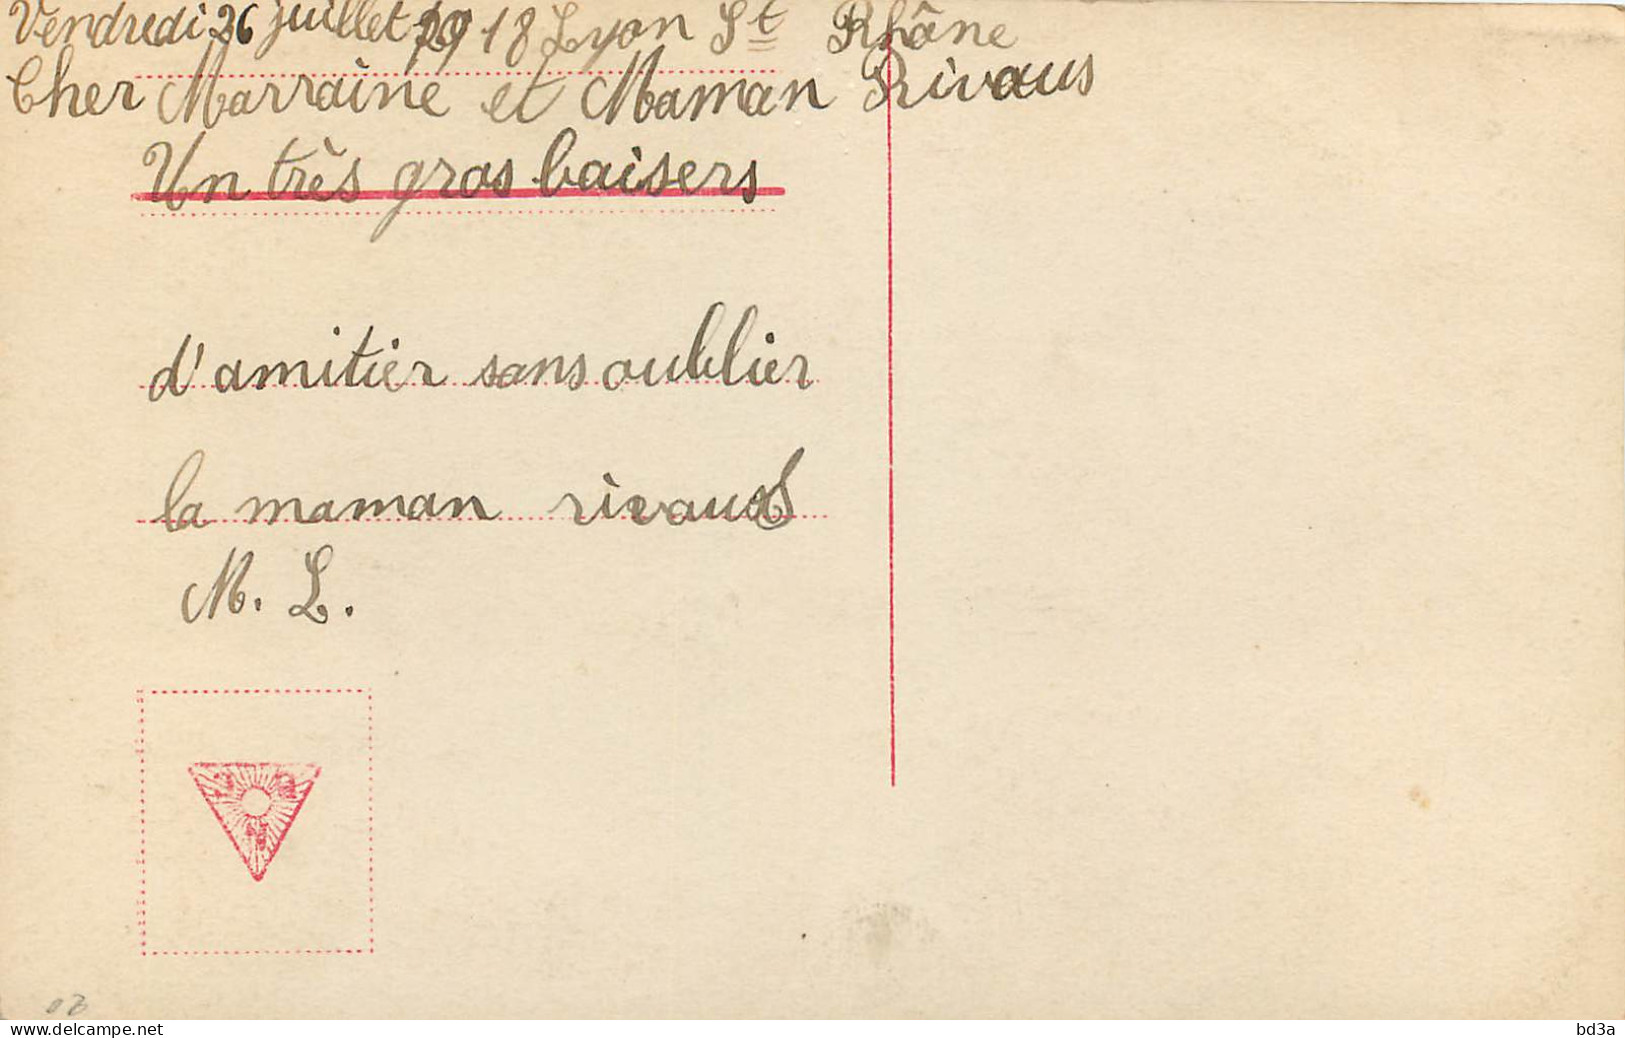 Vendredi 26 juillet 1918 Lyon St Rhône
Cher Marraine et Maman Rivaus
Un très gros baisers
d'amitier sans oublier
la maman rivaus
M. L.
www.delcampe.net
bd3a